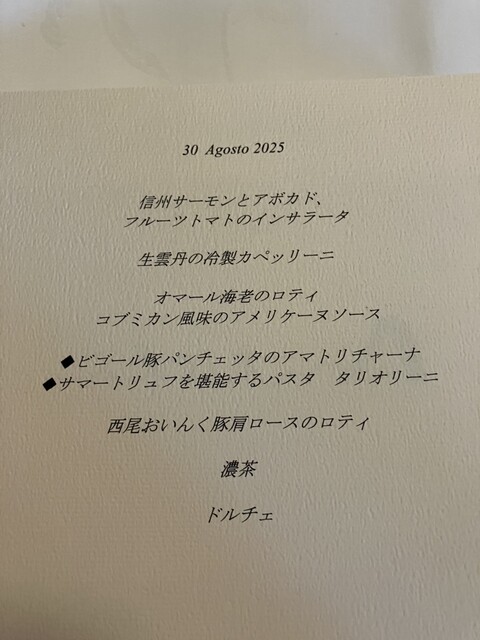 30 Agosto 2025
信州サーモンとアボカド、
フルーツトマトのインサラータ
生雲丹の冷製カペッリーニ
オマール海老のロティ
コブミカン風味のアメリケーヌソース
◆ビゴール豚パンチェッタのアマトリチャーナ
◆サマートリュフを堪能するパスタ　タリオリーニ
西尾おいんく豚肩ロースのロティ
濃茶
ドルチェ